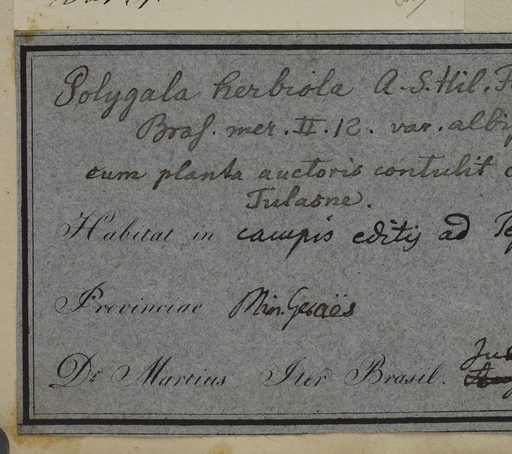 Polygala herbiola A. S. Hil. F
Bras. mer. II. 12. var. albif
cum planta auctoris contulit c
Tulasne.
Habitat in campis editis ad Te
Provinciae Min. Geraës
Dr. Martius Iter Brasil. Jun